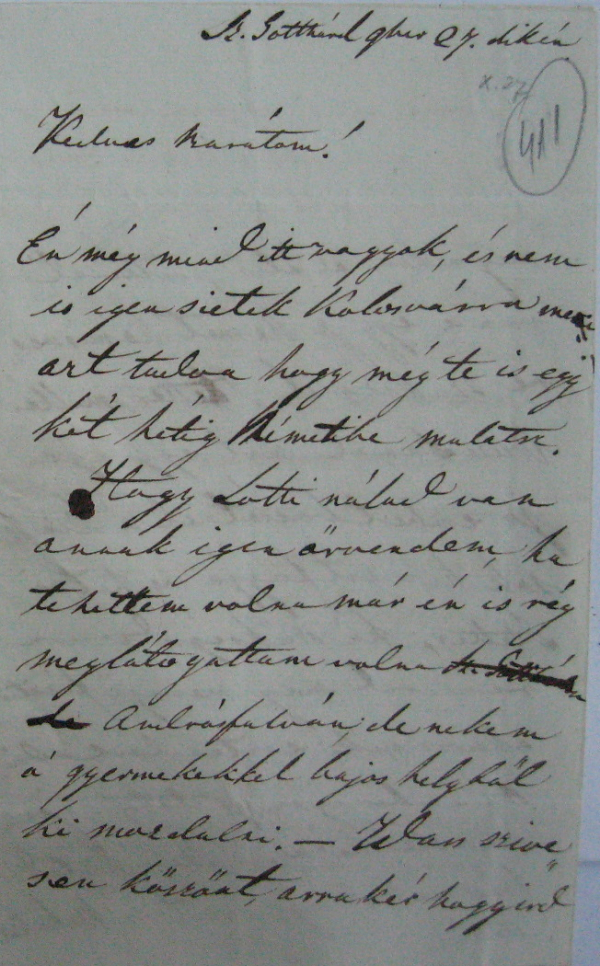 Sz. Gotthárd 9ber 27. dikén
X. 27
411
Kedves Barátom!
Én még mind itt vagyok, és nem
is igen sietek Kolosvárra menni
azt tudva hogy még te is egy
két hétig Németibe mulatsz.
Hogy Lotti nálad van
annak igen örvendem, ha
tehettem volna már én is rég
meglátogattam volna
Andrásfalván, de nekem
a gyermekekkel bajos helyből
ki mozdulni. — Wass szive
sen köszönt, arra kér hogy ird